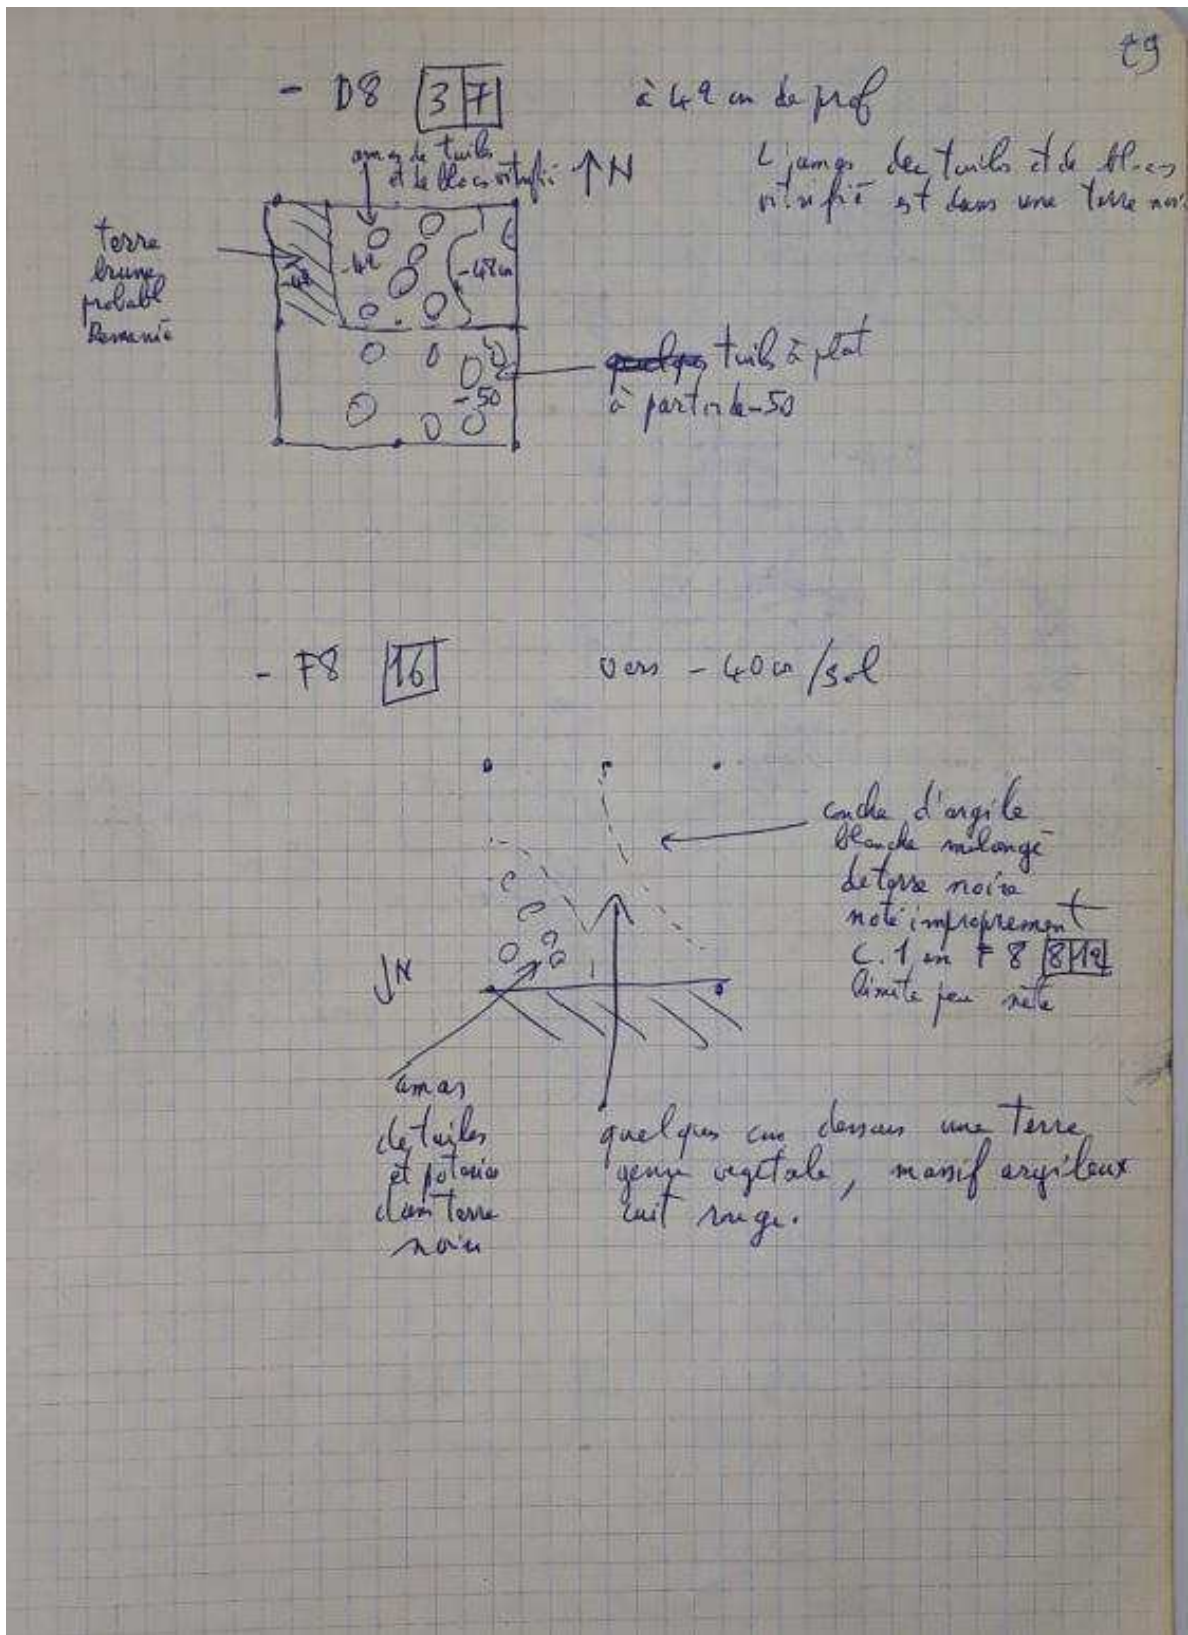 29
- D8 3 7 à 42 cm de prof
amas de tuiles
et de blocs vitrifié ↑ N
L'amas de tuiles et de blocs
vitrifié est dans une terre noir
terre
brune
probabl
remanié
-42
-42
-48 cm
-50
quelques tuiles à plat
à partir de -50
- F8 16 vers - 40 cm /sol
couche d'argile
blanche mélangé
de terre noire
noté improprement
C.1 en F 8 8 12
limite peu nète
N
amas
de tuiles
et poterie
dans terre
noire
quelques cm dessous une terre
genre végétale, massif argileux
cuit rouge.